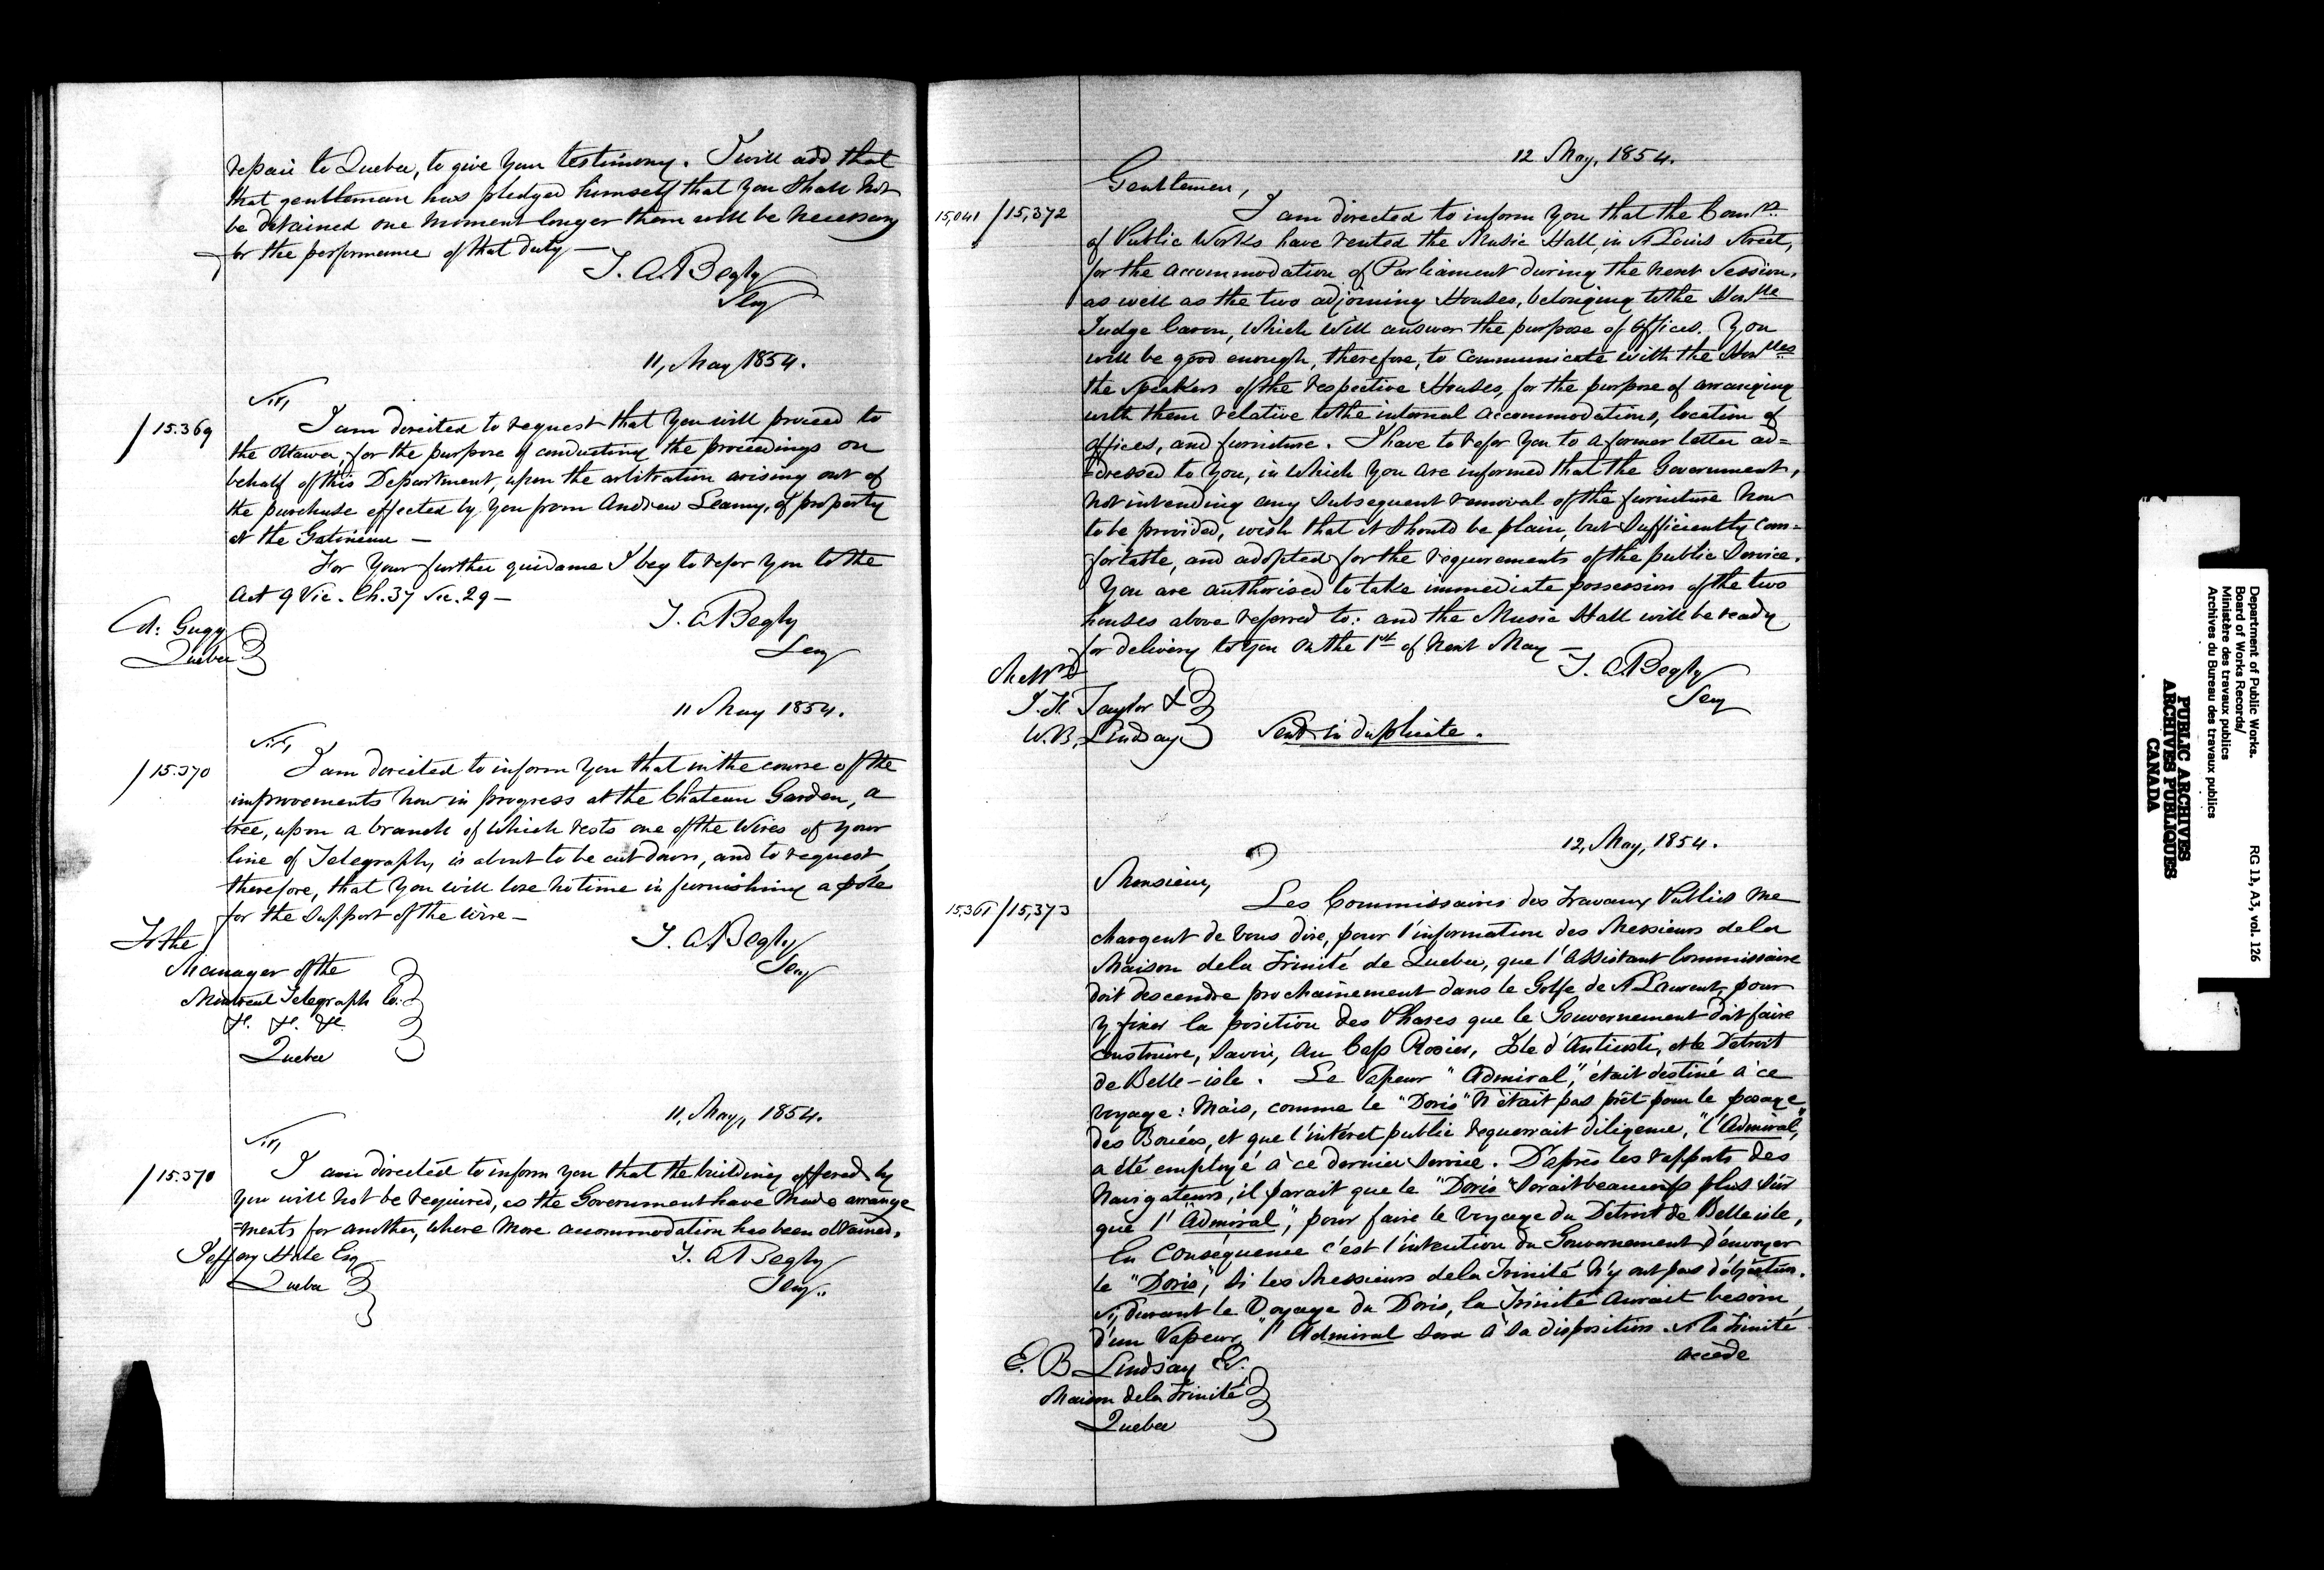 repair to Quebec, to give your testimony. I will add that
that gentleman has pledged himself that you shall not
be detained one moment longer than will be necessary
for the performance of that duty —
T. A. Begly
Secy
11, May 1854.
Sir,
/15.369
I am directed to request that you will proceed to
the Ottawa, for the purpose of conducting the proceedings on
behalf of this Department, upon the arbitration arising out of
the purchase effected by you from Andrew Leamy, of property
at the Gatineau —
For your further guidance I beg to refer you to the
Act 9 Vic. Ch. 37 Sec. 29 —
T. A. Begly
Secy
Col: Gugy
Quebec
11 May 1854.
Sir,
/15.370
I am directed to inform you that in the course of the
improvements now in progress at the Chateau Garden, a
tree, upon a branch of which rests one of the wires of your
line of Telegraph, is about to be cut down, and to request,
therefore, that you will lose no time in furnishing a pole
for the support of the wire —
T. A. Begly
Secy
To the
Manager of the
Montreal Telegraph Co.
&c. &c. &c.
Quebec
11, May, 1854.
Sir,
/15.370
I am directed to inform you that the building offered by
you will not be required, as the Government have made arrange
=ments for another, where more accommodation has been obtained.
T. A. Begly
Secy..
Jeffery Hale Esq
Quebec
12 May, 1854.
Gentlemen,
15,041/15,372
I am directed to inform you that the Comrs.
of Public Works have rented the Music Hall, in St Louis Street,
for the accommodation of Parliament during the next Session,
as well as the two adjoining Houses, belonging to the Honble
Judge Caron, which will answer the purpose of offices. You
will be good enough, therefore, to communicate with the Honbles
the Speakers of the respective Houses, for the purpose of arranging
with them relative to the internal accommodations, location of
offices, and furniture. I have to refer you to a former letter ad=
=dressed to you, in which you are informed that the Government,
not intending any subsequent removal of the furniture now
to be provided, wish that it should be plain, but sufficiently com=
fortable, and adapted for the requirements of the public service.
You are authorised to take immediate possession of the two
houses above referred to: and the Music Hall will be ready
for delivery to you on the 1st of next May —
T. A. Begly
Secy
Messrs
J. F. Taylor &
W. B. Lindsay
Send in duplicate.
12, May, 1854.
Monsieur,
15,361/15,373
Les Commissaires des Travaux Publics me
chargent de vous dire, pour l'information des Messieurs de la
Maison de la Trinité de Quebec, que l'Assistant Commissaire
doit descendre prochainement dans le Golfe de St Laurent, pour
y fixer la position des Phares que le Gouvernement doit faire
construire, savoir, au Cap Rosier, Isle d'Anticosti, et le Detroit
de Belle-isle. Le Vapeur "Admiral," était destiné à ce
voyage: Mais, comme le "Doris" n'était pas prêt pour le posage
des Bouées, et que l'intéret public requerrait diligence, "l'Admiral,"
a été employé à ce dernier service. D'après les rapports des
Navigateurs, il parait que le "Doris" serait beaucoup plus sûr
que l'"Admiral," pour faire le voyage du Detroit de Belle isle,
En Conséquence c'est l'intention du Gouvernement d'envoyer
le "Doris," si les Messieurs de la Trinité n'y ont pas d'objection.
Si, durant le voyage du Doris, la Trinité aurait besoin,
d'un Vapeur, "l'Admiral sera à sa disposition. Si la Trinité
accède
E. B. Lindsay Er.
Maison de la Trinité
Quebec
Department of Public Works. RG 11, A3, vol. 126
Board of Works Records/
Ministère des travaux publics
Archives du Bureau des travaux publics
PUBLIC ARCHIVES
ARCHIVES PUBLIQUES
CANADA